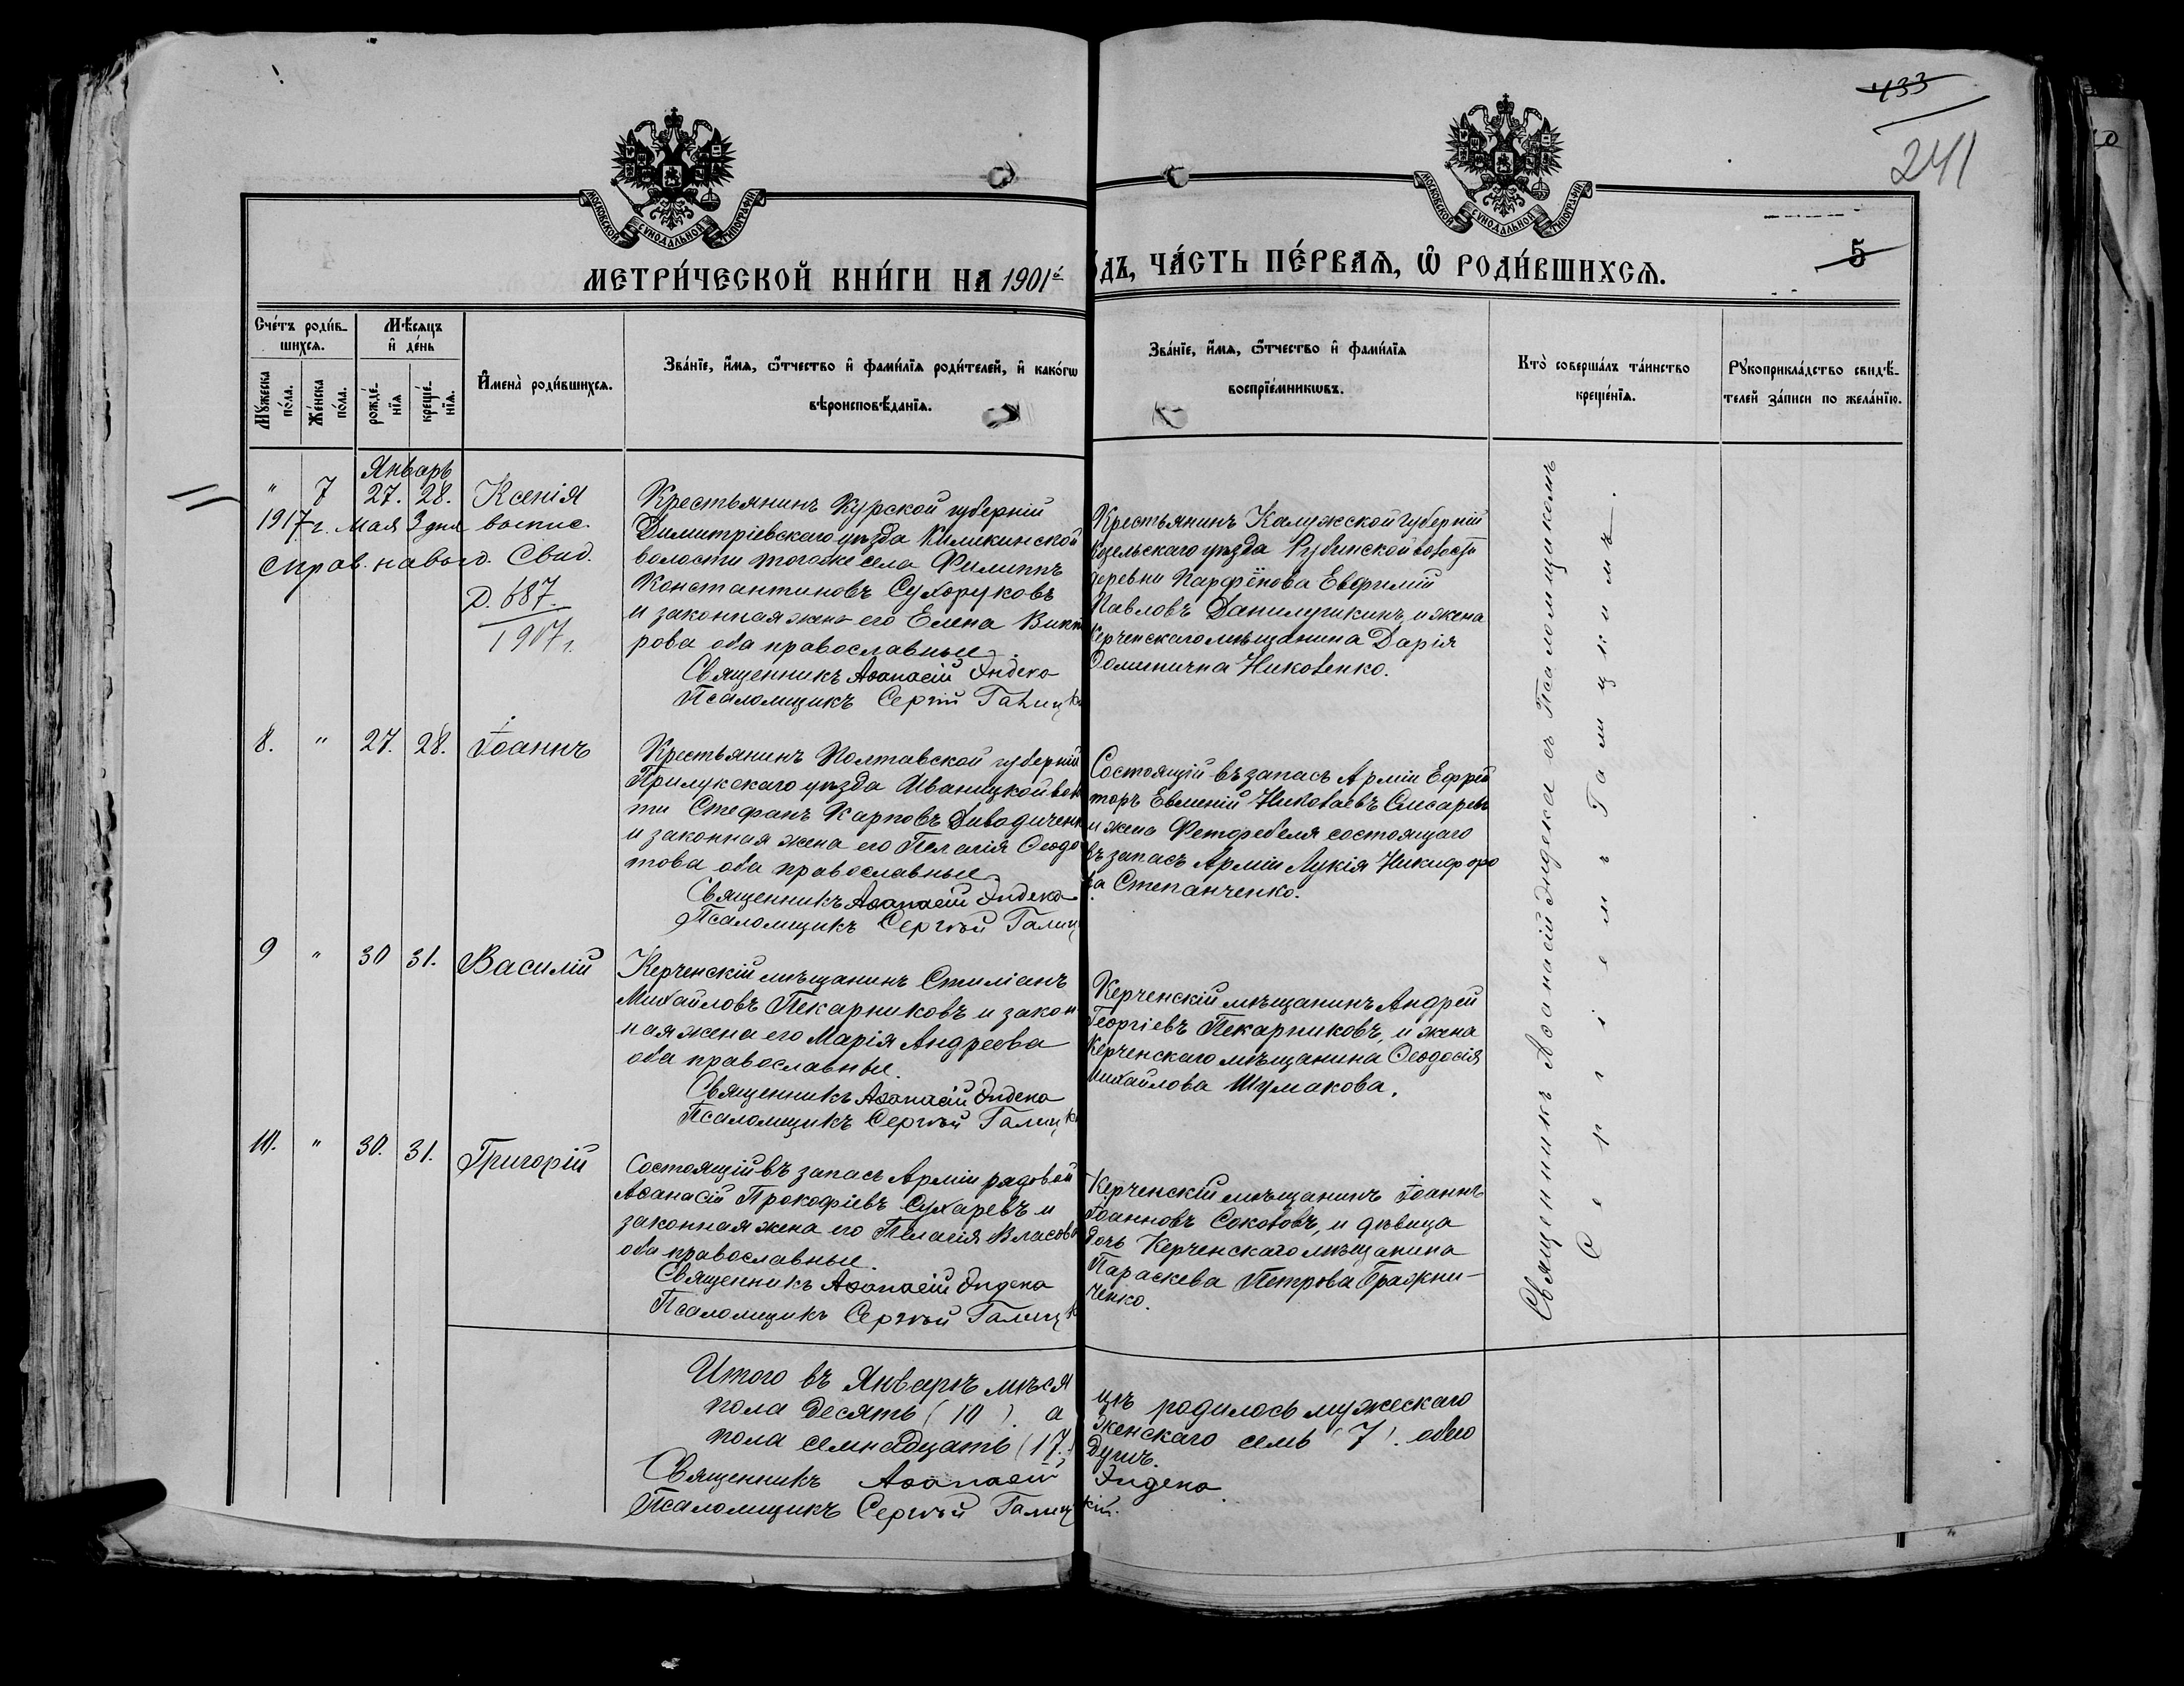 433
241
МОСКОВСКОЙ СѴНОДАЛЬНОЙ ТИПОГРАФІИ
МОСКОВСКОЙ СѴНОДАЛЬНОЙ ТИПОГРАФІИ
5
МЕТРИ́ЧЕСКОЙ КНИ́ГИ НА 1901й
ДЪ, ЧА́СТЬ ПЕ́РВАѦ, Ѡ҆ РОДИ́ВШИХСѦ.
Сче́тъ роди́в-
шихсѧ.
Му́жеска по́ла.
Же́нска по́ла.
Мѣ́сяцъ
и҆ де́нь
рожде́нїѧ
креще́нїѧ.
И҆мена̀ роди́вшихсѧ.
Зва́нїе, и҆́мѧ, ѻ҆́тчество и҆ фами́лїѧ роди́телей, и҆ како́гѡ
вѣроисповѣ́данїѧ.
Зва́нїе, и҆́мѧ, ѻ҆́тчество и҆ фами́лїѧ
воспрїе́мникѡвъ.
Кто̀ соверша́лъ та́инство
креще́нїѧ.
Рꙋкоприкла́дство свидѣ́-
телей за́писи по жела́нїю.
Январь
" 7 27. 28. Ксенія
1917 г. Мая 3 дня выпис.
справ. на выд. Свид.
Д. 687.
1917 г.
Крестьянинъ Курской губерніи
Димитріевскаго уѣзда
волости того же села Филиппъ
Константиновъ Сухоруковъ
и законная жена его Елена Викт
рова оба православные.
Священникъ Аѳанасій Индеко
Псаломщикъ Сергій Галицк
Крестьянинъ Калужской губерніи
Козельскаго уѣзда волости
деревни Парфёнова Евфимій
Павловъ и жена
Керченскаго мѣщанина Дарія
Николенко.
8. " 27. 28. Іоаннъ
Крестьянинъ Полтавской губерніи
Прилукскаго уѣзда Иваницкой вол
ти Стефанъ Карповъ Диводиченк
и законная жена его Пелагія Ѳеодо
това оба православные.
Священникъ Аѳанасій Индеко
Псаломщикъ Сергѣй Галиц
Состоящій въ запасѣ Арміи Ефрей
торъ Евменій Николаевъ Слисаревъ
и жена Фельдфебеля состоящаго
въ запасѣ Арміи Лукія Никифоро
ва Степанченко.
9 " 30 31. Василій
Керченскій мѣщанинъ Стиліанъ
Михайловъ Пекарниковъ и закон
ная жена его Марія Андреева
оба православные.
Священникъ Аѳанасій Индеко
Псаломщикъ Сергѣй Галицк
Керченскій мѣщанинъ Андрей
Георгіевъ Пекарниковъ, и жена
Керченскаго мѣщанина Ѳеодосія
Михайлова Шумакова.
10. " 30. 31. Григорій
Состоящій въ запасѣ Арміи рядовой
Аѳанасій Прокофіевъ Сухаревъ и
законная жена его Пелагія Власова
оба православные.
Священникъ Аѳанасій Индеко
Псаломщикъ Сергѣй Галицк
Керченскій мѣщанинъ Іоаннъ
Іоанновъ Соколовъ, и дѣвица
дочь Керченскаго мѣщанина
Параскева Петрова Бражни-
ченко.
Священникъ Аѳанасій Индеко съ Псаломщикомъ
Сергіемъ Галицкимъ.
Итого въ Январѣ мѣся
цѣ родилось мужескаго
пола десять (10). а
женскаго семь (7). обоего
пола семнадцать (17.)
душъ.
Священникъ Аѳанасій Индеко
Псаломщикъ Сергѣй Галицкій.